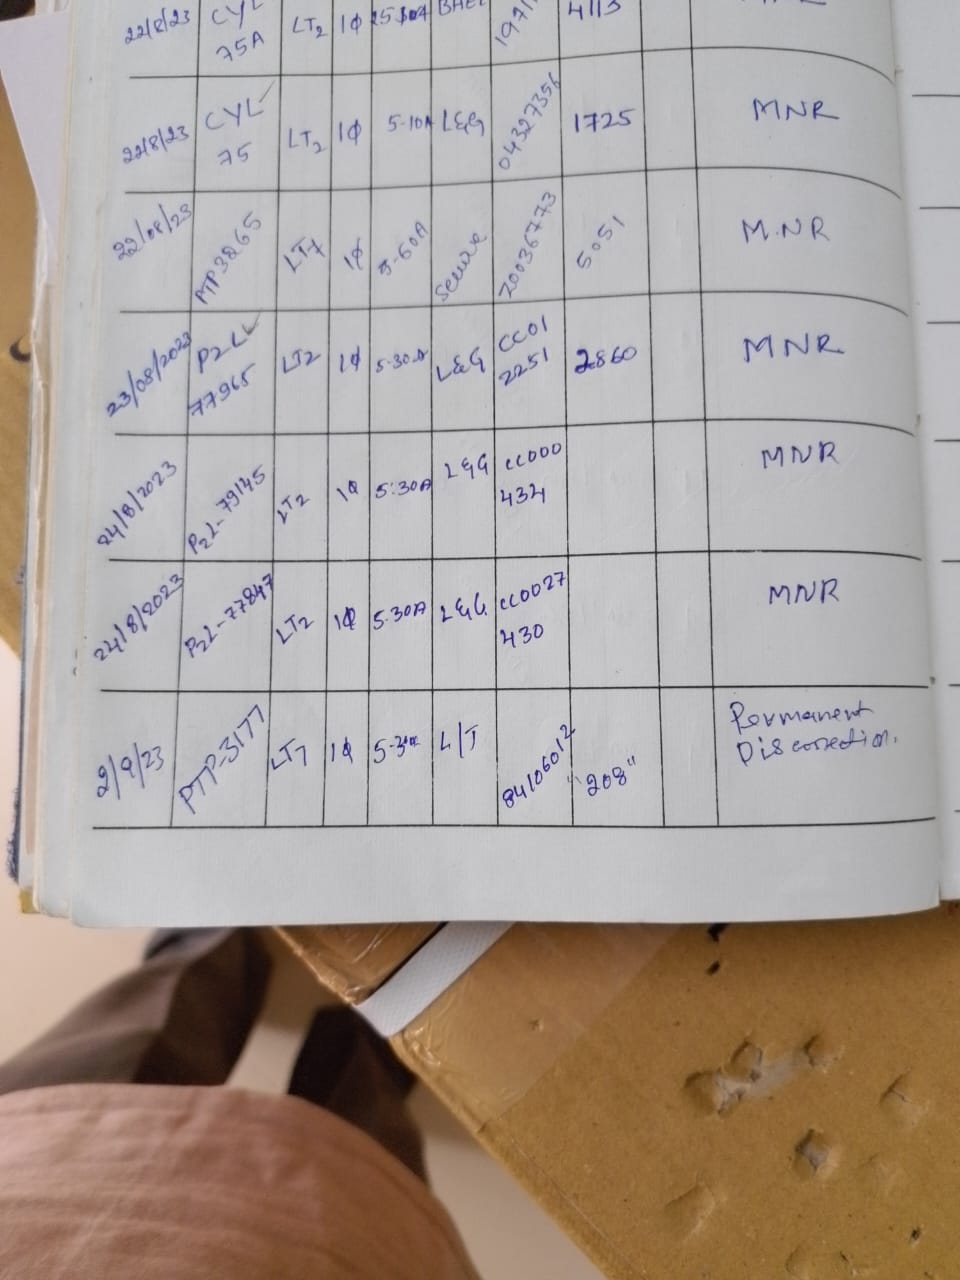 22/8/23 CYL 75A LT2 1Φ BHEL 4113
22/8/23 CYL 75 LT2 1Φ 5-10A L&G 04327356 1725 MNR
22/08/23 PTP3265 LT7 1Φ 5-60A 20036773 5051 M.NR
23/08/2023 P2LL 77965 LT2 1Φ 5-30A L&G CC01 2251 2860 MNR
24/8/2023 P2L-79145 LT2 1Φ 5-30A L&G CC000 434 MNR
24/8/2023 P2L-77847 LT2 1Φ 5-30A L&G CC0027 430 MNR
2/9/23 PTP-3177 LT7 1Φ L/T 84106012 "208" Permanent
Disconection.